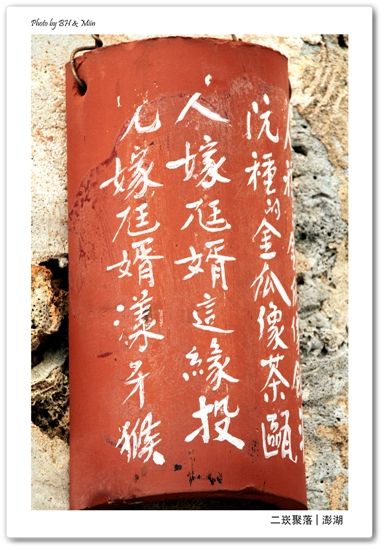 Photo by BH & Miin
阮種的金瓜像茶甌
人嫁尪婿這緣投
阮嫁尪婿猴
二崁聚落 | 澎湖